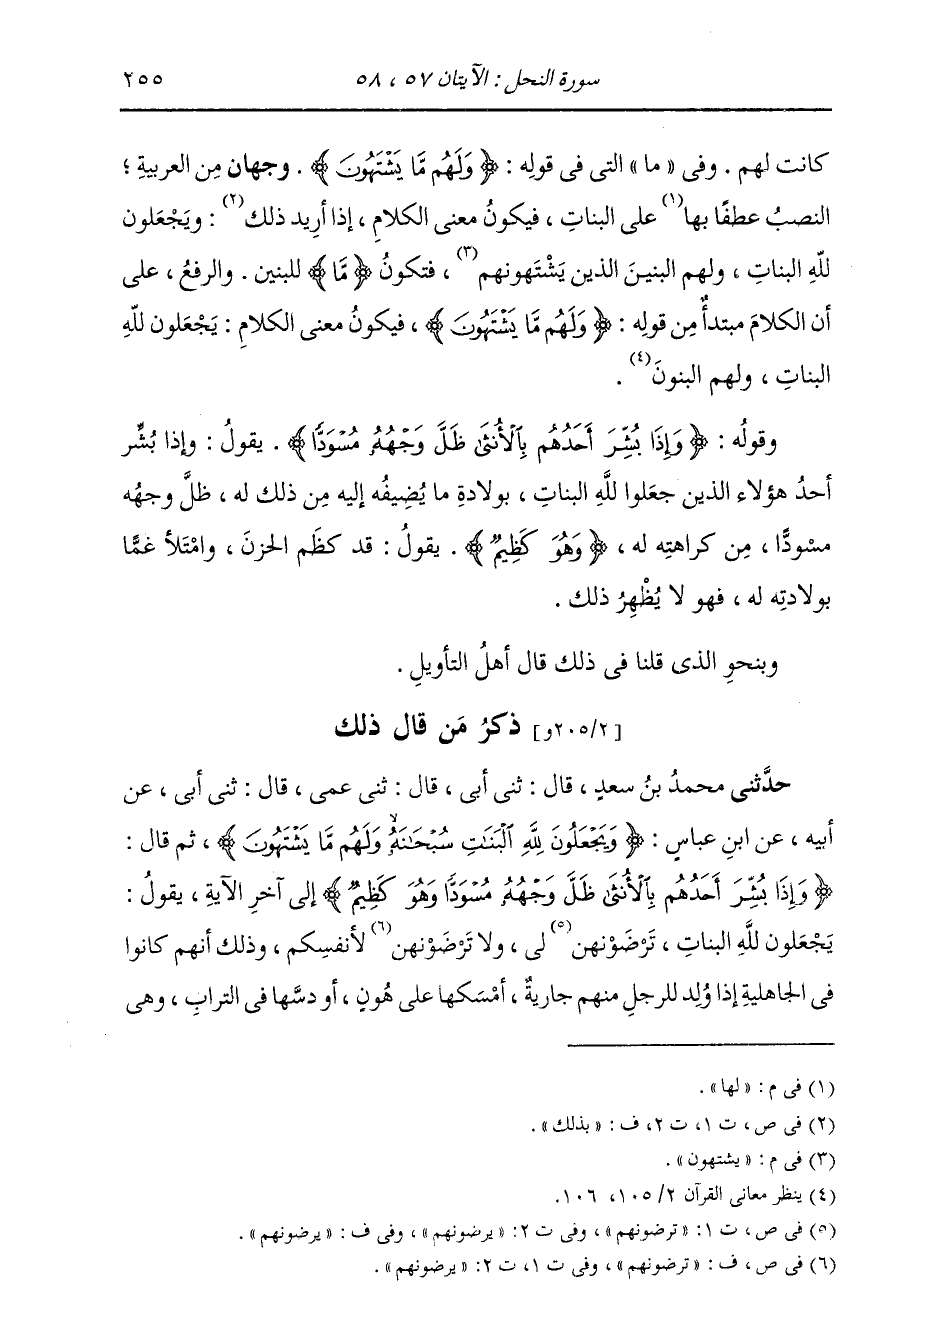 سورة النحل : الآيتان ٥٧ ، ٥٨ ٢٥٥
كانت لهم . وفى « ما » التى فى قولِه : ﴿ وَلَهُم مَّا يَشْتَهُونَ ﴾ . وجهان مِن العربيةِ ؛
النصبُ عطفًا بها(١) على البناتِ ، فيكونُ معنى الكلامِ ، إذا أريد ذلك(٢) : ويَجْعَلون
للَّهِ البناتِ ، ولهم البنينَ الذين يَشْتَهونهم(٣) ، فتكونُ ﴿ مَّا ﴾ للبنين . والرفعُ ، على
أن الكلامَ مبتدأٌ مِن قولِه : ﴿ وَلَهُم مَّا يَشْتَهُونَ ﴾ ، فيكونُ معنى الكلامِ : يَجْعَلون للَّهِ
البناتِ ، ولهم البنونَ(٤) .
وقولُه : ﴿ وَإِذَا بُشِّرَ أَحَدُهُم بِٱلْأُنثَىٰ ظَلَّ وَجْهُهُۥ مُسْوَدًّا ﴾ . يقولُ : وإذا بُشِّر
أحدُ هؤلاء الذين جعَلوا للَّهِ البناتِ ، بولادةِ ما يُضِيفُه إليه مِن ذلك له ، ظلَّ وجهُه
مسْودًّا ، مِن كراهتِه له ، ﴿ وَهُوَ كَظِيمٌ ﴾ . يقولُ : قد كظَم الحزنَ ، وامْتَلأ غمًّا
بولادتِه له ، فهو لا يُظْهِرُ ذلك .
وبنحوِ الذى قلنا فى ذلك قال أهلُ التأويلِ .
[٢٠٥/٢و] ذكرُ مَن قال ذلك
حدَّثنى محمدُ بنُ سعدٍ ، قال : ثنى أبى ، قال : ثنى عمى ، قال : ثنى أبى ، عن
أبيه ، عن ابنِ عباسٍ : ﴿ وَيَجْعَلُونَ لِلَّهِ ٱلْبَنَٰتِ سُبْحَٰنَهُۥۙ وَلَهُم مَّا يَشْتَهُونَ ﴾ ، ثم قال :
﴿ وَإِذَا بُشِّرَ أَحَدُهُم بِٱلْأُنثَىٰ ظَلَّ وَجْهُهُۥ مُسْوَدًّا وَهُوَ كَظِيمٌ ﴾ إلى آخرِ الآيةِ ، يقولُ :
يَجْعَلون للَّهِ البناتِ ، تَرْضَوْنهن(٥) لى ، ولا تَرْضَوْنهن(٦) لأنفسِكم ، وذلك أنهم كانوا
فى الجاهليةِ إذا وُلِد للرجلِ منهم جاريةٌ ، أمْسَكها على هُونٍ ، أو دسَّها فى الترابِ ، وهى
(١) فى م : « لها » .
(٢) فى ص ، ت ١ ، ت ٢ ، ف : « بذلك » .
(٣) فى م : « يشتهون » .
(٤) ينظر معانى القرآن ٢/ ١٠٥ ، ١٠٦ .
(٥) فى ص ، ت ١ : « ترضونهم » ، وفى ت ٢ : « يرضونهم » ، وفى ف : « يرضونهم » .
(٦) فى ص ، ف : « ترضونهم » ، وفى ت ١ ، ت ٢ : « يرضونهم » .